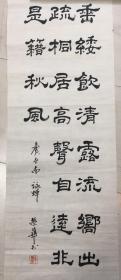 垂緌飲清露流響出
疏桐居高聲自遠非
是籍秋風
虞世南詠蟬